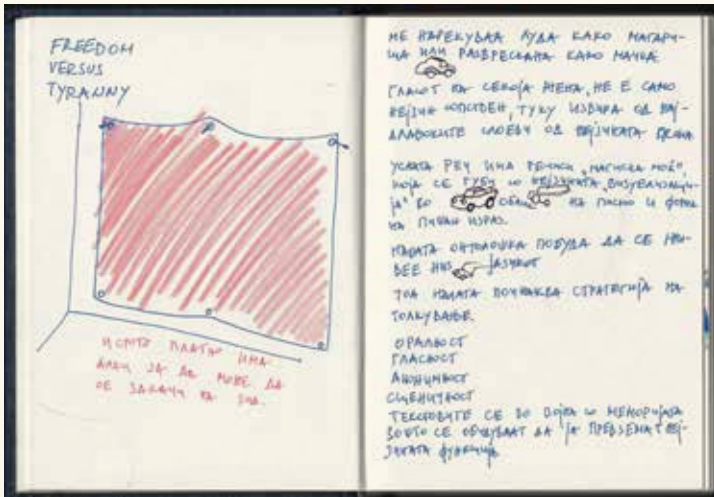 FREEDOM
VERSUS
TYRANNY
ИСТО ПЛАТНО ИМА
АЛКИ ЗА ДА МОЖЕ ДА
СЕ ЗАКАЧИ НА ЅИД.
НЕ НАРЕКУВАА ЛУДА КАКО МАГАРИ-
ЦА ИЛИ РАЗБРЕСКАНА КАКО МАЧКА.
ГЛАСОТ НА СЕКОЈА ЖЕНА, НЕ Е САМО
НЕЈЗИН СОПСТВЕН, ТУКУ ИЗВИРА ОД НАЈ-
ДЛАБОКИТЕ СЛОЕВИ ОД НЕЈЗИНАТА
УСНАТА РЕЧ ИМА РЕЧИСИ „МАГИСКА МОЌ",
КОЈА СЕ ГУБИ СО НЕЈЗИНАТА „ВИЗУЕЛИЗАЦИ-
ЈА" ВО НА ПИСМО И ФОРМА
НА ПИШАН ИЗРАЗ.
ОНТОЛОШКА ПОБУДА ДА СЕ ЖИ-
ВЕЕ НИЗ ЈАЗИКОТ
ТОА НАЛАГА ПОИНАКВА СТРАТЕГИЈА НА
ТОЛКУВАЊЕ.
ОРАЛНОСТ
ГЛАСНОСТ
АНОНИМНОСТ
СЦЕНИЧНОСТ
ТЕКСТОВИТЕ СЕ ВО ВОЈНА СО МЕМОРИЈАТА
ЗОШТО СЕ ОБИДУВААТ ДА ЈА ПРЕВЗЕМАТ НЕЈ-
ЗИНАТА ФУНКЦИЈА